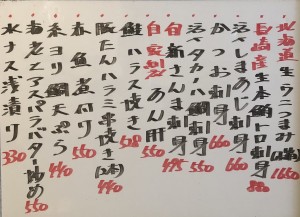 北海道生ウニつまみ(海水) 1650
長崎産生本鮪トロ刺身 880
活〆しまあじ刺身 660
かつお刺身 660
活〆タカバ鯛刺身 550
新さんま刺身 495
自家製あん肝 550
鮭ハラス焼き 518
阪たんハラミ串焼き(2本) 440
赤魚煮付 550
糸ヨリ鯛天ぷら 440
海老とアスパラバター炒め 550
水ナス浅漬り 330